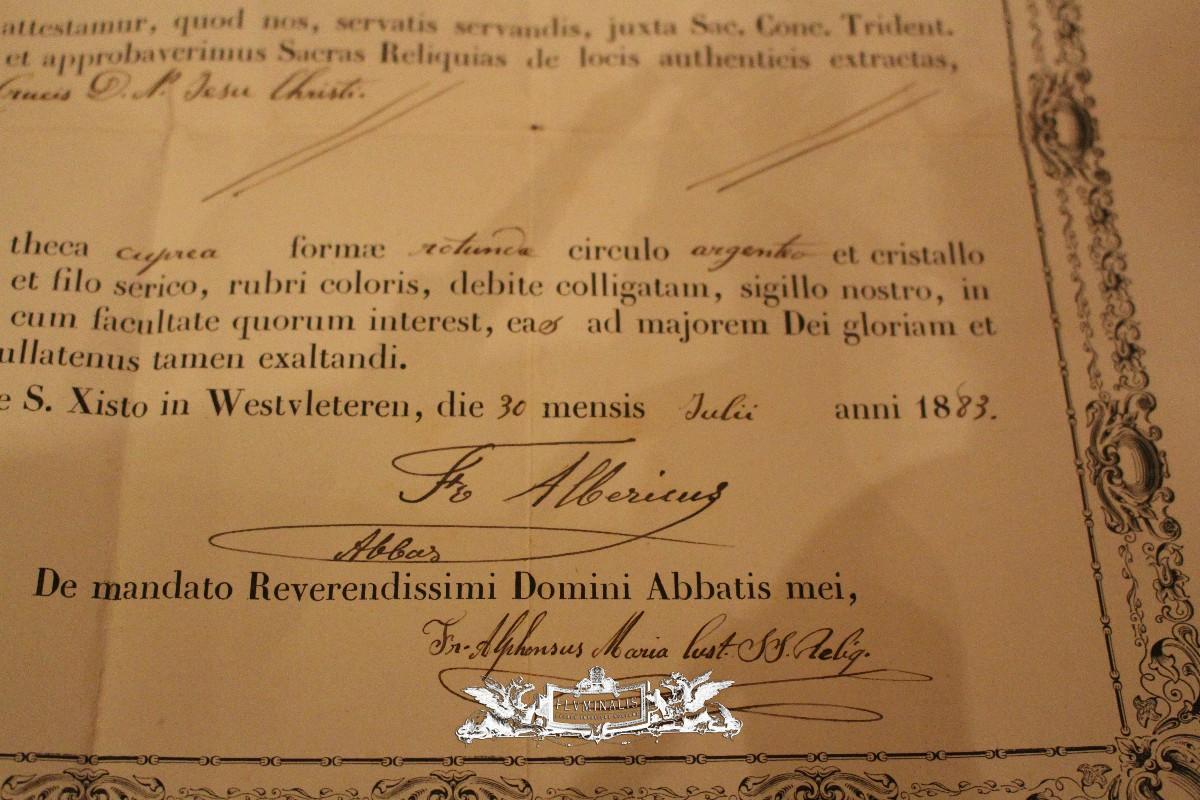 attestamur, quod nos, servatis servandis, juxta Sac. Conc. Trident.
et approbaverimus Sacras Reliquias de locis authenticis extractas,
Crucis D. N. Jesu Christi.
theca cuprea formæ rotunda circulo argenteo et cristallo
et filo serico, rubri coloris, debite colligatam, sigillo nostro, in
cum facultate quorum interest, eas ad majorem Dei gloriam et
ullatenus tamen exaltandi.
e S. Xisto in Westvleteren, die 30 mensis Julii anni 1883.
Fr. Albericus
Abbas
De mandato Reverendissimi Domini Abbatis mei,
Fr. Alphonsus Maria Cust. SS. Reliq.
FLVMINALIS